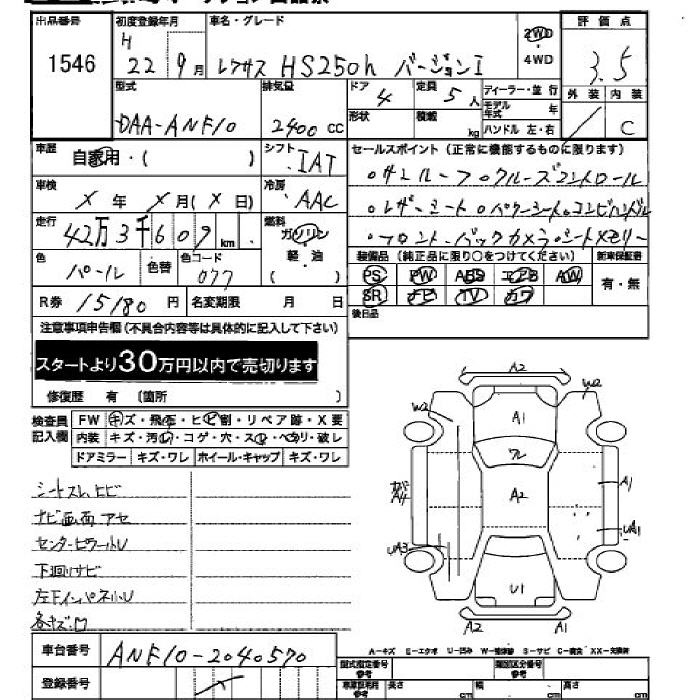 出品番号 初度登録年月 車名・グレード 評価点
1546 H 22 9月 レクサス HS250h バージョンI 2WD ・ 4WD 3.5
型式 排気量 ドア 4 定員 5人 ディーラー・並行 外装 内装
DAA-ANF10 2400 CC 形状 積載 kg モデル年式 年 ハンドル 左・右 C
車歴 自家用・( ) シフト IAT セールスポイント(正常に機能するものに限ります)
車検 X 年 X 月( X 日) 冷房 AAC
○サンルーフ ○クルーズコントロール
○レザーシート ○パワーシート ○コンビハンドル
○フロント・バックカメラ ○シートメモリー
走行 42万3千609km 燃料 ガソリン 軽・油 ( )
色 パール 色替 色コード 077
装備品(純正品に限り○をつけてください) 新車保証書
PS PW ABS エアB AW 有・無
SR ナビ TV カワ
R券 15180 円 名変期限 月 日 後日品
注意事項申告欄(不具合内容等は具体的に記入して下さい)
スタートより30万円以内で売切ります
修復歴 有 〔箇所 〕
検査員記入欄 FW キズ・飛石・ヒビ割・リペア跡・X要
内装 キズ・汚れ・コゲ・穴・スレ・ヘタリ・破レ
ドアミラー キズ・ワレ ホイール・キャップ キズ・ワレ
シートスレ ヒビ
ナビ画面 アセ
センターピラーU
下廻りサビ
左下インパネ小U
各キズ・凹
A2
W2 W2
A1
A4 A2 A1
UA3 UA1
U1
A2 A1
A-キズ E-エクボ U-凹み W-補修跡 S-サビ C-腐食 XX-交換済
車台番号 ANF10-2040570
登録番号
型式指定番号参考 類別区分番号参考
長さ cm 幅 cm 高さ cm